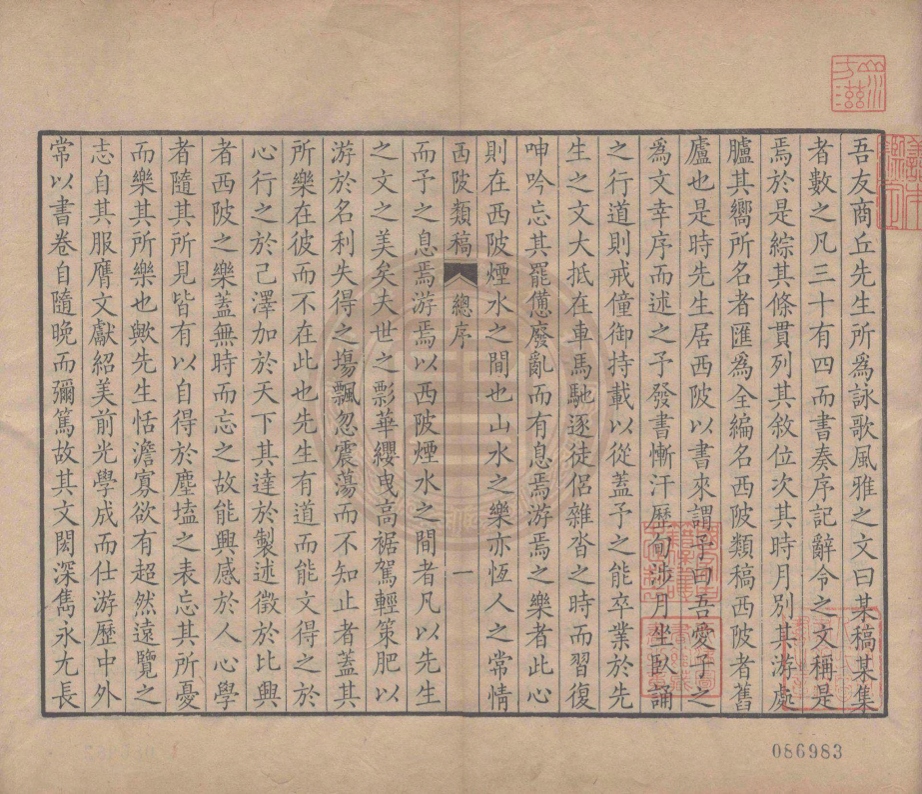 吾友商丘先生所為詠歌風雅之文曰某稿某集
者數之凡三十有四而書奏序記辭令之文稱是
焉於是綜其條貫列其敘位次其時月別其游處
臚其嚮所名者匯為全編名西陂類稿西陂者舊
廬也是時先生居西陂以書來謂予曰吾愛子之
為文幸序而述之予發書慚汗歷旬涉月坐臥誦
之行道則戒僮御持載以從蓋予之能卒業於先
生之文大抵在車馬馳逐徒侶雜沓之時而習復
呻吟忘其罷憊廢亂而有息焉游焉之樂者此心
則在西陂煙水之間也山水之樂亦恆人之常情
西陂類稿 總序 一
而予之息焉游焉以西陂煙水之間者凡以先生
之文之美矣夫世之影華纓曳高裾駕輕策肥以
游於名利失得之場飄忽震蕩而不知止者蓋其
所樂在彼而不在此也先生有道而能文得之於
心行之於己澤加於天下其達於製述徵於比興
者西陂之樂蓋無時而忘之故能興感於人心學
者隨其所見皆有以自得於塵壒之表忘其所憂
而樂其所樂也歟先生恬澹寡欲有超然遠覽之
志自其服膺文獻紹美前光學成而仕游歷中外
常以書卷自隨晚而彌篤故其文閎深雋永尤長
086983